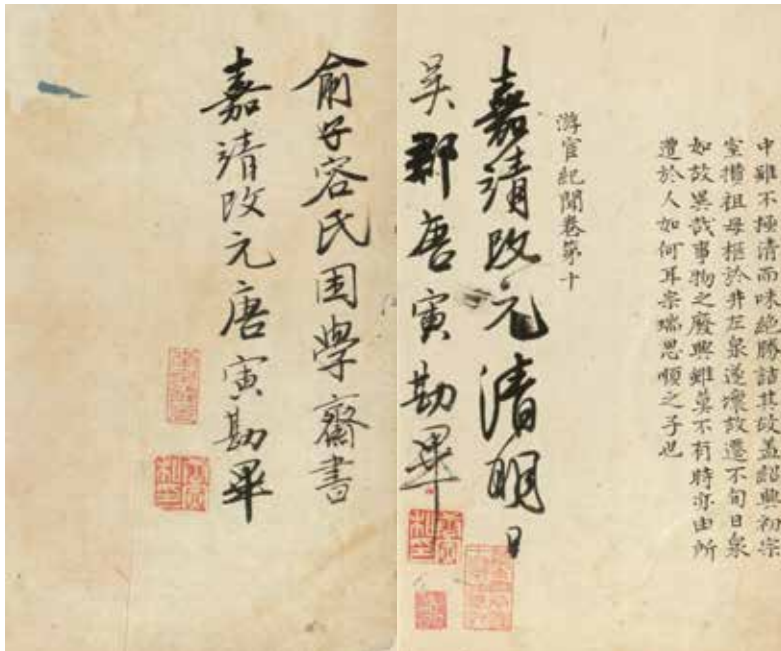 中雖不極清而味絶勝詰其故盖紹興初宗
室攢祖母柩於井左泉遂壞改遷不旬日泉
如故異哉事物之廢興雖莫不有時亦由所
遭於人如何耳宗瑞思順之子也
游宦紀聞卷第十
嘉靖改元清明日
吳郡唐寅勘畢
俞子容氏困學齋書
嘉靖改元唐寅勘畢